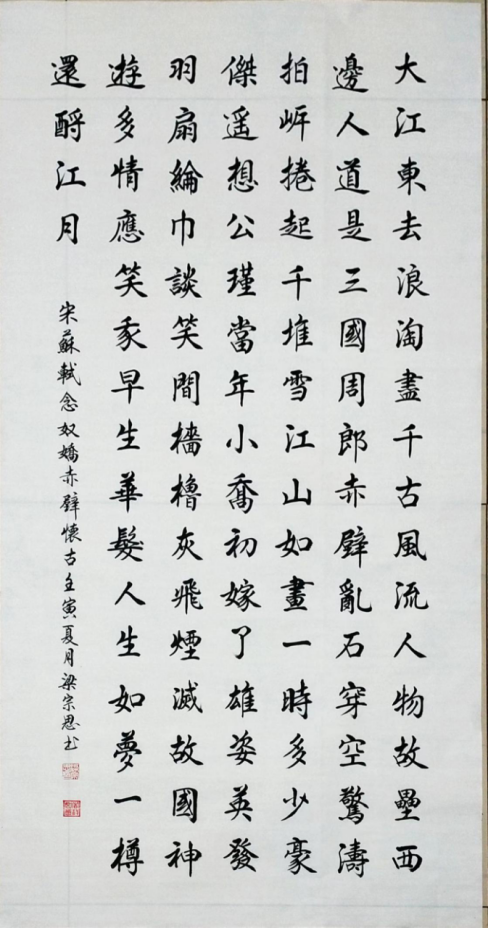 大江東去浪淘盡千古風流人物故壘西
邊人道是三國周郎赤壁亂石穿空驚濤
拍岍捲起千堆雪江山如畫一時多少豪
傑遥想公瑾當年小喬初嫁了雄姿英發
羽扇綸巾談笑間檣櫓灰飛煙滅故國神
遊多情應笑我早生華髮人生如夢一樽
還酹江月
宋蘇軾念奴嬌赤壁懷古壬寅夏月梁宗恩书